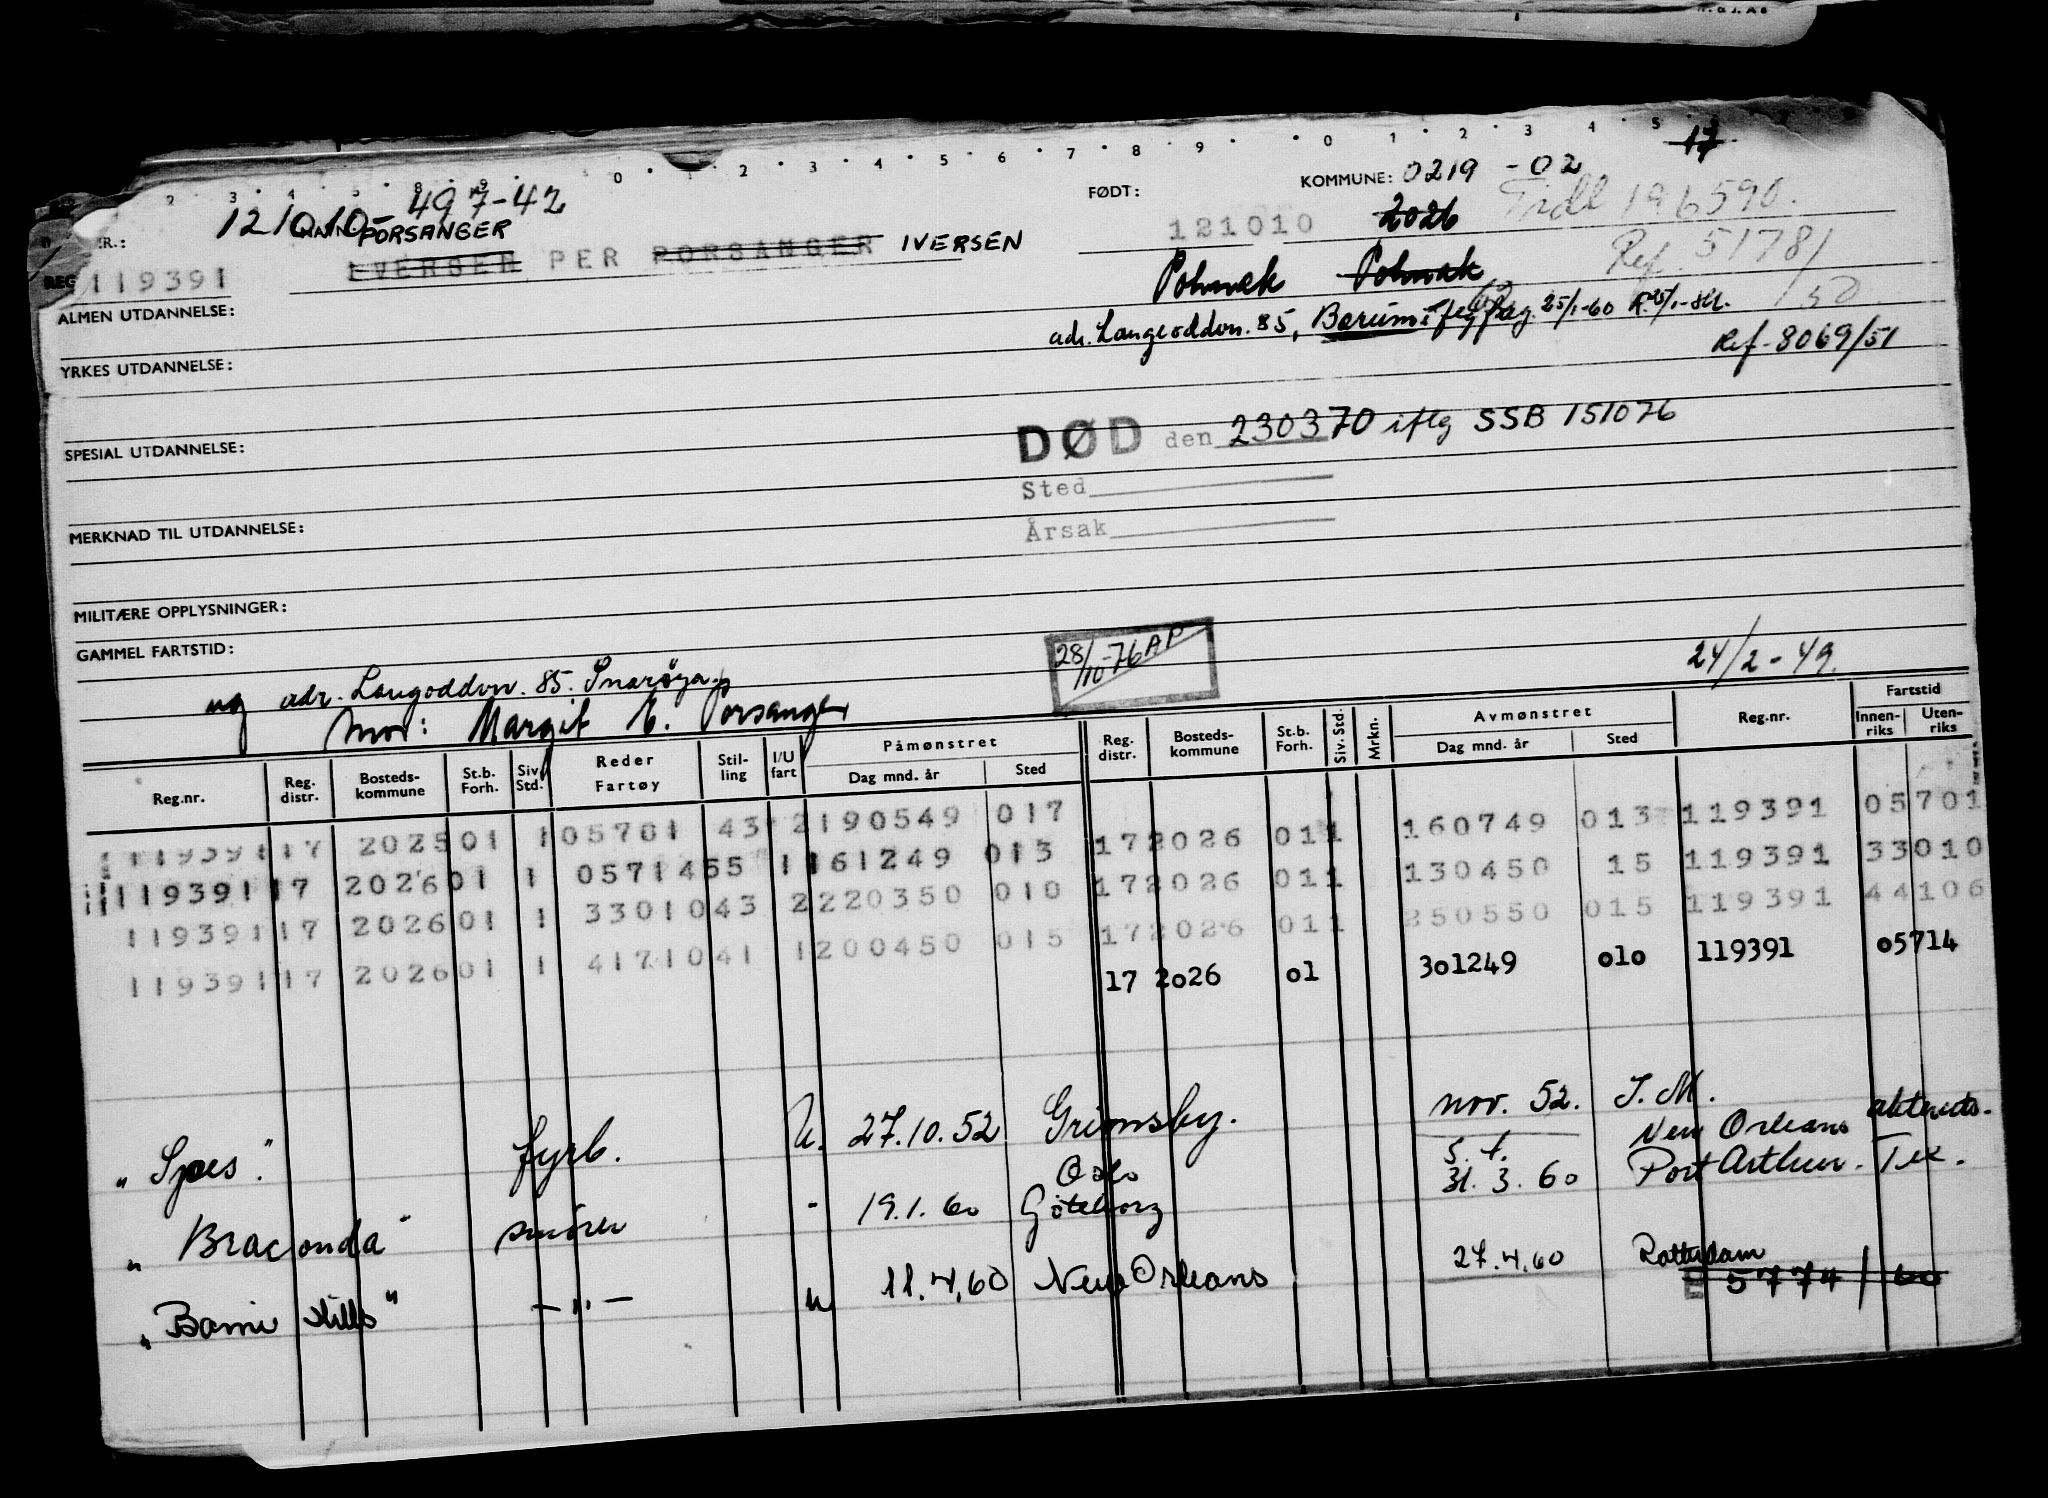 2 3 4 5 8 9 0 1 2 3 4 5 6 7 8 9 0 1 2 3 4 5
17
KOMMUNE: 0219 - 02
FØDT:
121010 - 497-42
PORSANGER
121010 2026 Tidl 196590.
IVERSEN PER PORSANGER IVERSEN
REG 119391
Polmak Polmak
Ref 51781/50
ALMEN UTDANNELSE:
adr. Langoddvn. 85, Bærum 25/1-60
Ref. 8069/51
YRKES UTDANNELSE:
DØD den 230370 iflg SSB 151076
SPESIAL UTDANNELSE:
Sted
Årsak
MERKNAD TIL UTDANNELSE:
MILITÆRE OPPLYSNINGER:
GAMMEL FARTSTID:
28/10-76 AP
24/2-49.
ug adr. Langoddvn. 85. Snarøya
Mor: Margit E. Porsanger
Reg.nr. Reg. distr. Bosteds-kommune St.b. Forh. Siv. Std. Reder Fartøy Stil-ling I/U fart Påmønstret Dag mnd. år Sted Reg. distr. Bosteds-kommune St.b. Forh. Siv. Std. Mrkn. Avmønstret Dag mnd. år Sted Reg.nr. Fartstid Innen-riks Uten-riks
119391 17 2025 01 1 05701 43 2 190549 017 17 2026 01 1 160749 013 119391 05701
119391 17 2026 01 1 05714 55 1 161249 013 17 2026 01 1 130450 15 119391 33010
119391 17 2026 01 1 33010 43 2 220350 010 17 2026 01 1 250550 015 119391 44106
119391 17 2026 01 1 41710 41 1 200450 015 17 2026 01 301249 010 119391 05714
"Spes". fyrb. U. 27.10.52 Grimsby. nov. 52. I.M.
"Braconda" smører - 19.1.60 Oslo Göteborg s.t. 31.3.60 New Orleans Port Arthur. Tex.
"Bomi Hills" -"- u 11.4.60 New Orleans 27.4.60 Rotterdam
5774/60